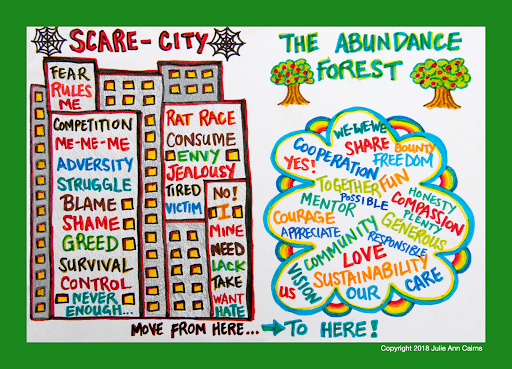 SCARE-CITY
FEAR
RULES
ME
COMPETITION
ME-ME-ME
ADVERSITY
STRUGGLE
BLAME
SHAME
GREED
SURVIVAL
CONTROL
NEVER
ENOUGH...
RAT RACE
CONSUME
ENVY
JEALOUSY
TIRED
VICTIM
NO!
I
MINE
NEED
LACK
TAKE
WANT
HATE
THE ABUNDANCE
FOREST
WE-WE-WE
SHARE
BOUNTY
COOPERATION
FREEDOM
YES!
TOGETHER
FUN
HONESTY
POSSIBLE
COMPASSION
MENTOR
PLENTY
COURAGE
GENEROUS
APPRECIATE
COMMUNITY
RESPONSIBLE
LOVE
VISION
SUSTAINABILITY
US
OUR
CARE
MOVE FROM HERE... → TO HERE!
Copyright 2018 Julie Ann Cairns